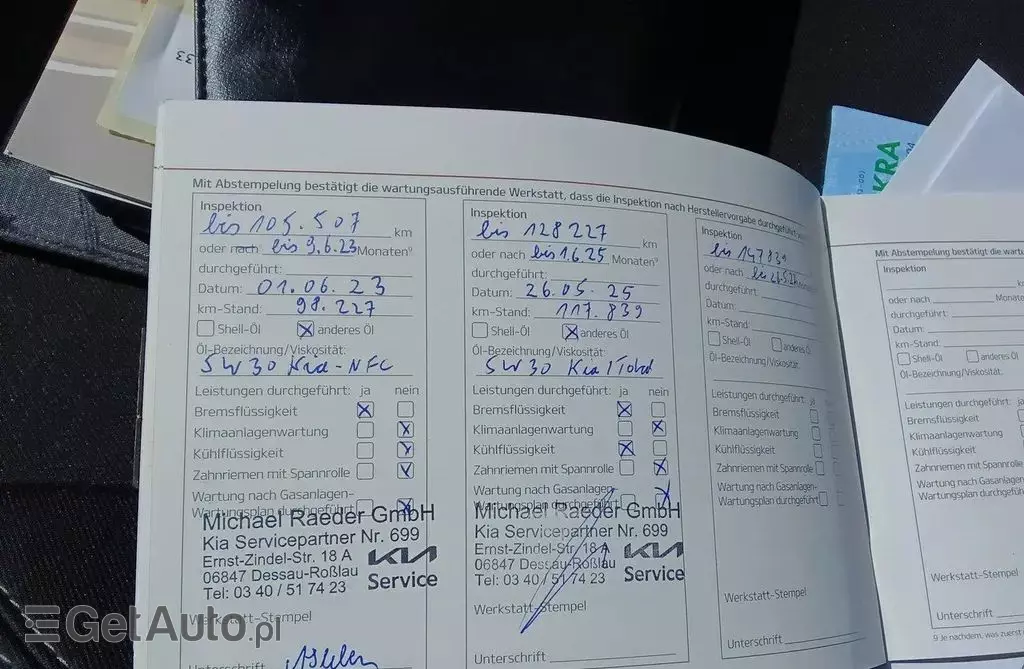 Mit Abstempelung bestätigt die wartungsausführende Werkstatt, dass die Inspektion nach Herstellervorgabe durchgeführt
Inspektion
bis 105.507 km
oder nach bis 9.6.23 Monaten⁹
durchgeführt:
Datum: 01.06.23
km-Stand: 98.227
Shell-Öl anderes Öl
Öl-Bezeichnung/Viskosität:
5W30 Kia-NFC
Leistungen durchgeführt: ja nein
Bremsflüssigkeit
Klimaanlagenwartung
Kühlflüssigkeit
Zahnriemen mit Spannrolle
Wartung nach Gasanlagen-
Wartungsplan durchgeführt
Michael Raeder GmbH
Kia Servicepartner Nr. 699
Ernst-Zindel-Str. 18 A
06847 Dessau-Roßlau
Tel: 03 40 / 51 74 23
KIA
Service
Werkstatt-Stempel
Unterschrift
Inspektion
bis 128227 km
oder nach bis 1.6.25 Monaten⁹
durchgeführt:
Datum: 26.05.25
km-Stand: 117.839
Shell-Öl anderes Öl
Öl-Bezeichnung/Viskosität:
5W30 Kia/Total
Leistungen durchgeführt: ja nein
Bremsflüssigkeit
Klimaanlagenwartung
Kühlflüssigkeit
Zahnriemen mit Spannrolle
Wartung nach Gasanlagen-
Wartungsplan durchgeführt
Michael Raeder GmbH
Kia Servicepartner Nr. 699
Ernst-Zindel-Str. 18 A
06847 Dessau-Roßlau
Tel: 03 40 / 51 74 23
KIA
Service
Werkstatt-Stempel
Unterschrift
Inspektion
bis 147839
oder nach bis 26.5.27
durchgeführt:
Datum:
km-Stand:
Shell-Öl anderes Öl
Öl-Bezeichnung/Viskosität:
Leistungen durchgeführt: ja
Bremsflüssigkeit
Klimaanlagenwartung
Kühlflüssigkeit
Zahnriemen mit Spannrolle
Wartung nach Gasanlagen-
Wartungsplan durchgeführt
Werkstatt-Stempel
Unterschrift
Mit Abstempelung bestätigt die
Inspektion
oder nach
durchgeführt:
Datum:
km-Stand:
Shell-Öl anderes Öl
Öl-Bezeichnung/Viskosität:
Leistungen durchgeführt: ja
Bremsflüssigkeit
Klimaanlagenwartung
Kühlflüssigkeit
Zahnriemen mit Spannrolle
Wartung nach Gasanlagen-
Wartungsplan
Werkstatt-Stempel
Unterschrift
9 Je nachdem, was zuerst
KRA
GetAuto.pl